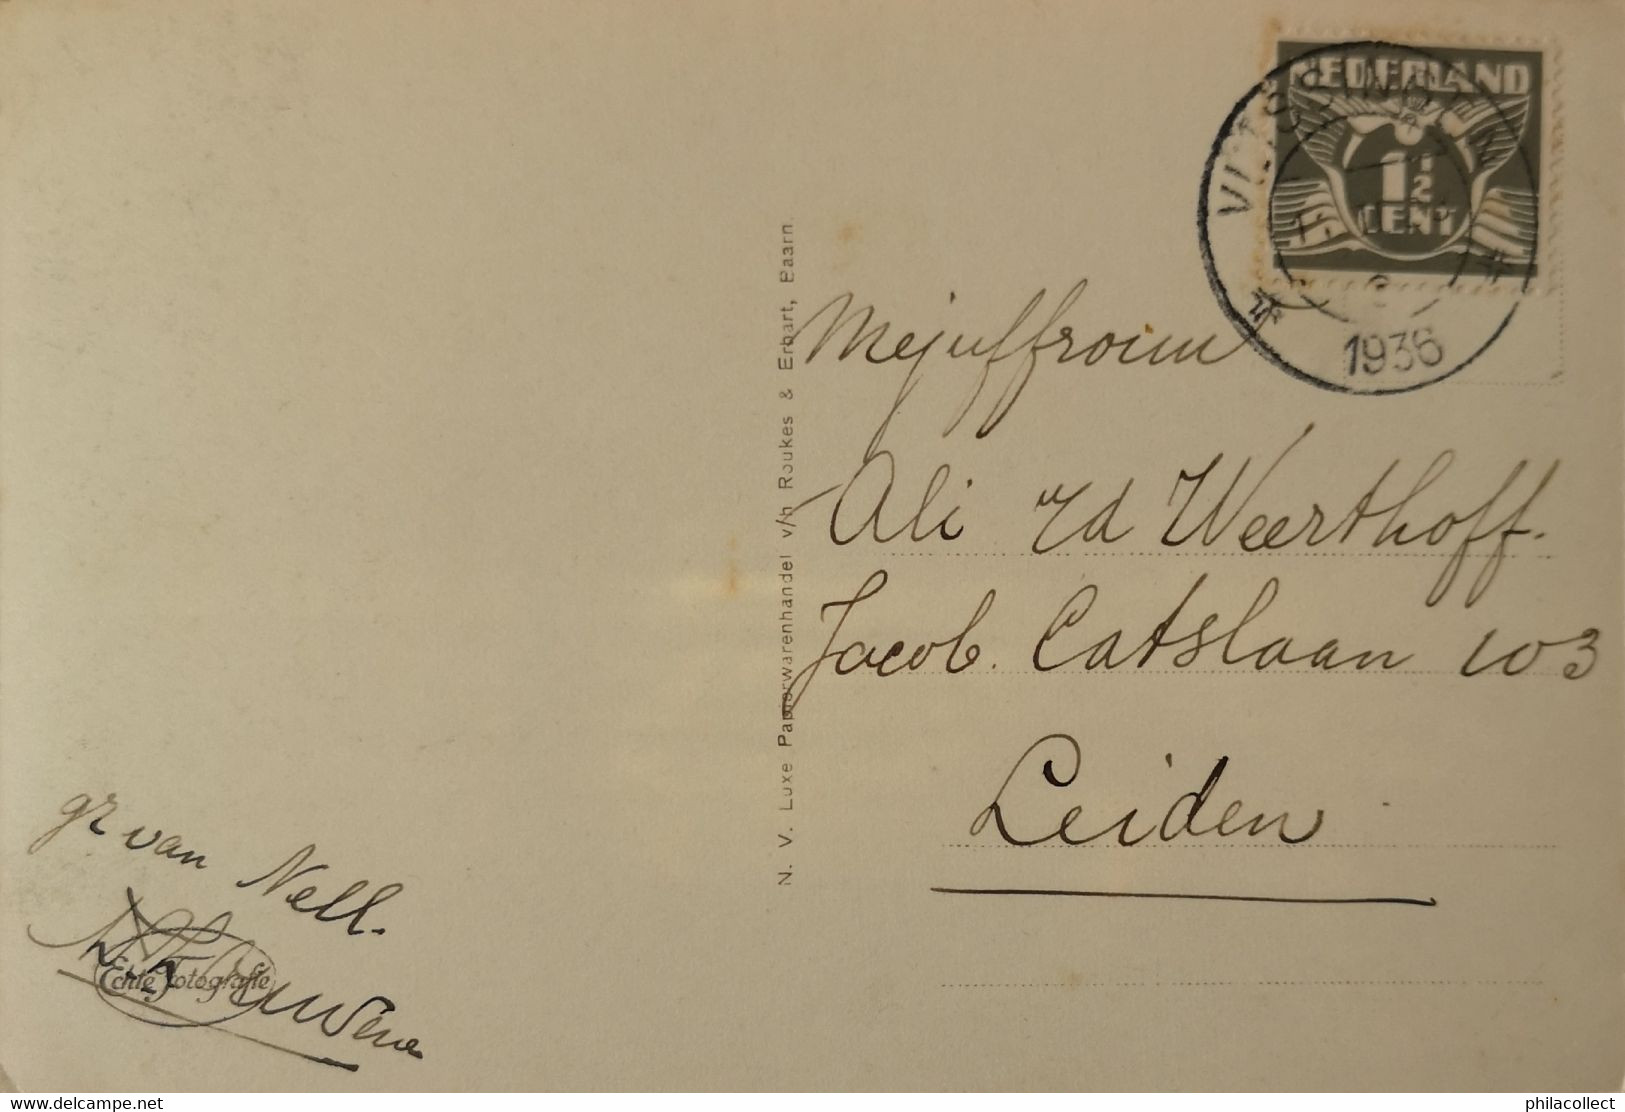 NEDERLAND
1 1/2
CENT
VLISSINGEN
1936
Mejuffrouw
Ali v/d Weerthoff.
Jacob. Catslaan 103
Leiden
N. V. Luxe Papierwarenhandel v/h Roukes & Erhart, Baarn.
gr van Nell.
Echte Fotografie
delcampe.net
philacollect